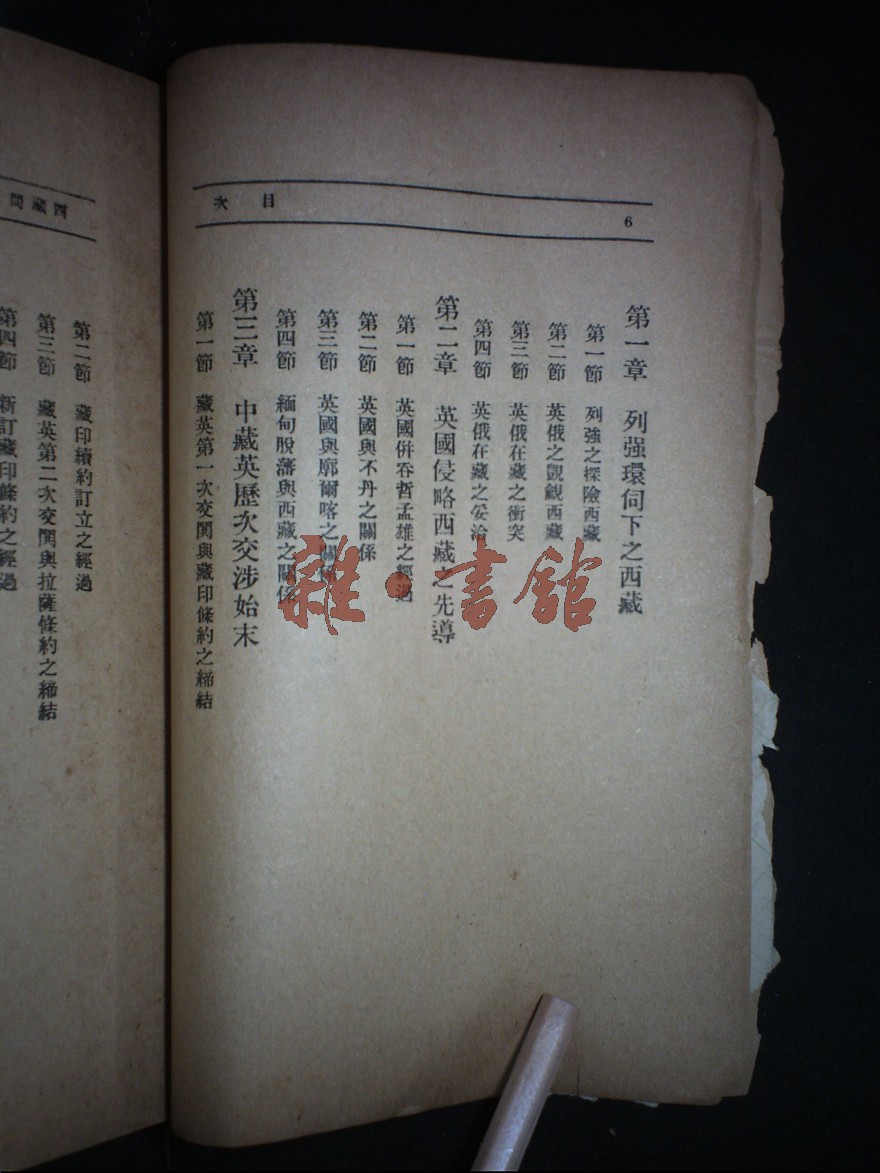 目次
6
第一章 列强環伺下之西藏
第一節 列强之探險西藏
第二節 英俄之覬覦西藏
第三節 英俄在藏之衝突
第四節 英俄在藏之妥洽
第二章 英國侵略西藏之先導
第一節 英國併吞哲孟雄之經過
第二節 英國與不丹之關係
第三節 英國與廓爾喀之關係
第四節 緬甸脫藩與西藏之關係
第三章 中藏英歷次交涉始末
第一節 藏英第一次交閧與藏印條約之締結
西藏問
第二節 藏印續約訂立之經過
第三節 藏英第二次交閧與拉薩條約之締結
第四節 新訂藏印條約之經過
雜·書館